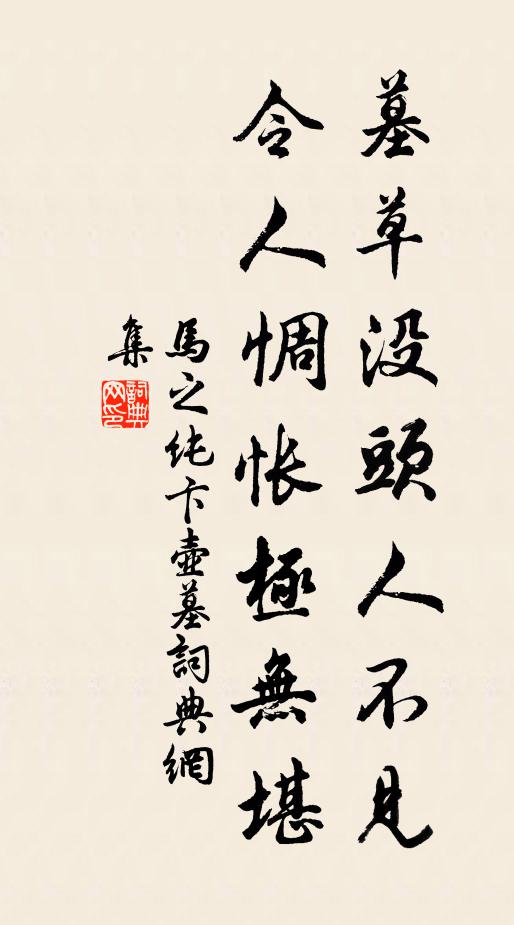 墓草没頭人不見
令人惆悵極無堪
馬之纯卞壺墓詞典網
集
詞典
网印